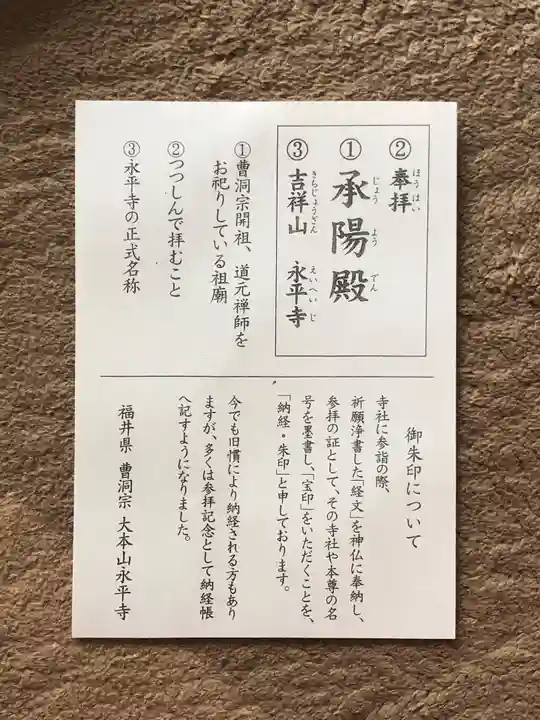 ② 奉拝
ほうはい
① 承陽殿
じょうようでん
③ 吉祥山 永平寺
きちじょうざん えいへいじ
① 曹洞宗開祖、道元禅師を
お祀りしている祖廟
② つつしんで拝むこと
③ 永平寺の正式名称
御朱印について
寺社に参詣の際、
祈願浄書した「経文」を神仏に奉納し、
参拝の証として、その寺社や本尊の名
号を墨書し、「宝印」をいただくことを、
「納経・朱印」と申しております。
今でも旧慣により納経される方もあり
ますが、多くは参拝記念として納経帳
へ記すようになりました。
福井県 曹洞宗 大本山永平寺